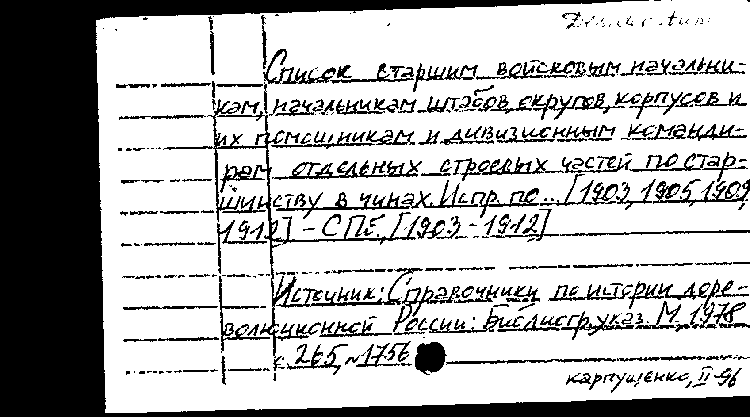 Список старшим войсковым начальни-
кам, начальникам штабов, округов, корпусов и
их помощникам и дивизионным команди-
рам отдельных строевых частей по стар-
шинству в чинах. Испр. по... [1903, 1905, 1909,
1912] - СПб., [1903-1912]
Источник: Справочники по истории доре-
волюционной России: Библиогр. указ. М., 1978
с. 265, №1756
карпущенко, II-96